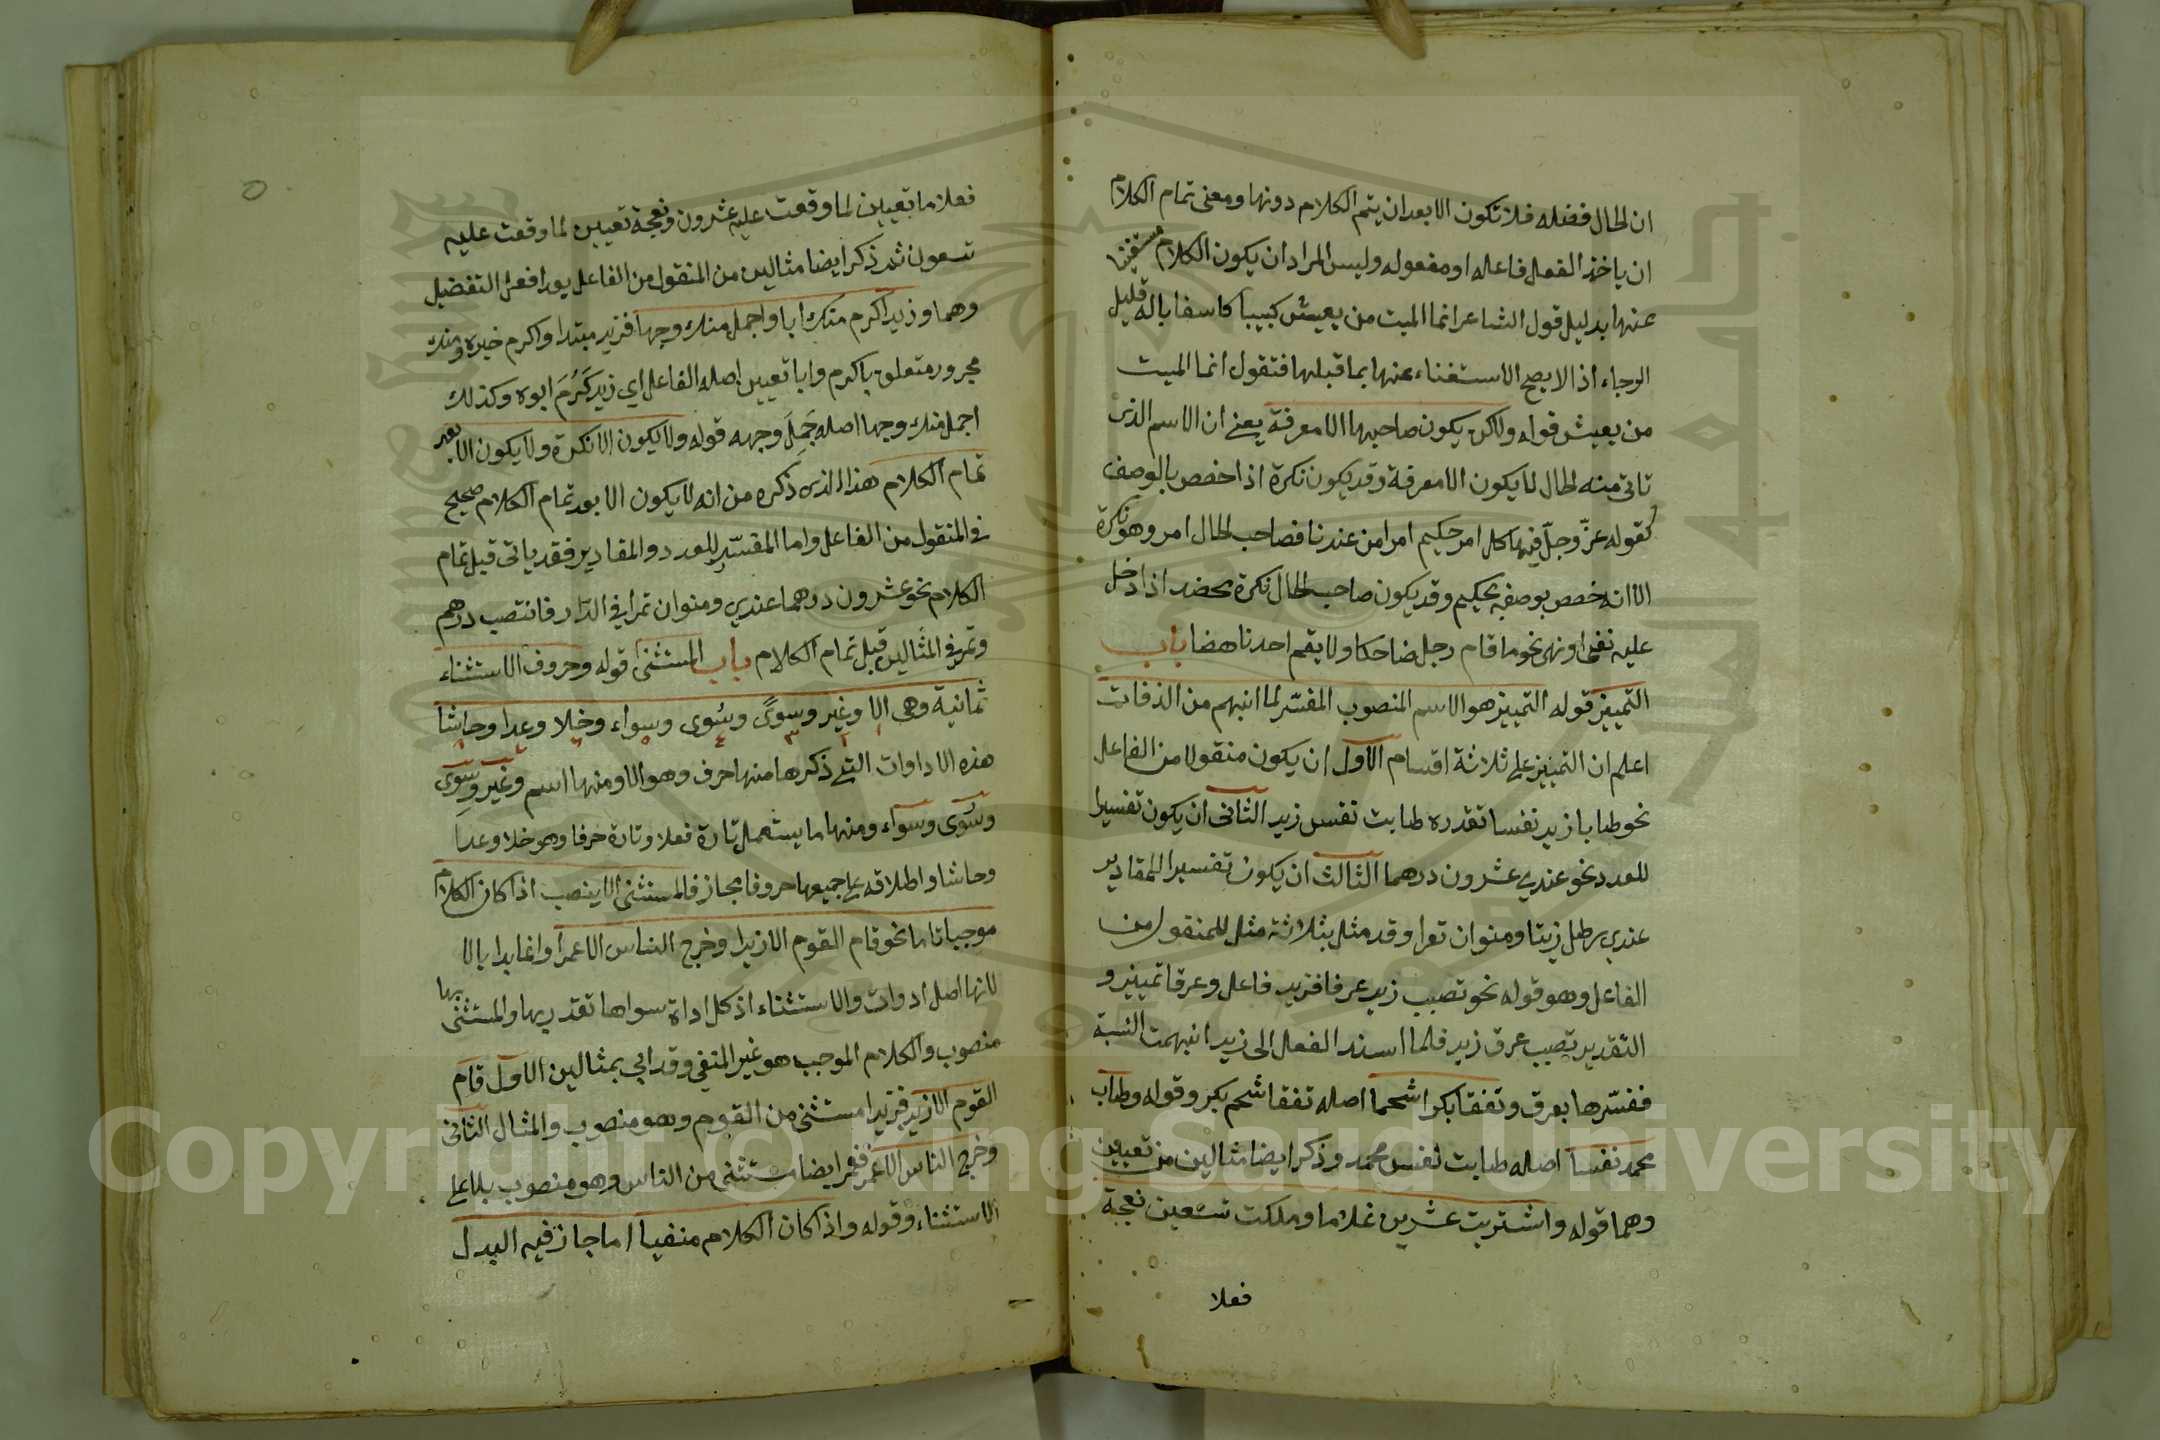 ان الحال فضله فلا تكون الا بعد ان يتم الكلام دونها ومعنى تمام الكلام
ان ياخذ الفعل فاعله او مفعوله وليس المراد ان يكون الكلام مستغنيا
عنها بدليل قول الشاعر انما الميت من يعيش كبيبا كاسفا باله قليل
الرجاء اذ لا يصح الاستغناء عنها بما قبلها فتقول انما الميت
من يعيش قوله ولا يكون صاحبها الا معرفة يعني ان الاسم الذي
تاتي منه الحال لا يكون الا معرفة وقد يكون نكرة اذا خصص بالوصف
كقوله عزّ وجلّ فيها كل امر حكيم امرا من عندنا فصاحب الحال امر وهو نكرة
الا انه خصص بوصفه بحكيم وقد يكون صاحب الحال نكرة محضه اذا دخل
عليه نفي او نهي نحو ما قام رجل ضاحكا ولا يقم احدنا هضا باب
التمييز قوله التمييز هو الاسم المنصوب المفسّر لما انبهم من الذوات
اعلم ان التمييز على ثلاثة اقسام الاول ان يكون منقولا من الفاعل
نحو طابا زيد نفسا تقدره طابت نفس زيد الثاني ان يكون تفسيرا
للعدد نحو عندي عشرون درهما الثالث ان يكون تفسيرا للمقادير
عندي رطل زيتا ومنوان تمرا وقد مثل بثلاثة مثل للمنقول من
الفاعل وهو قوله نحو تصبب زيد عرقا فزيد فاعل وعرقا تمييز و
التقدير تصبب عرق زيد فلما اسند الفعل الى زيد انبهمت النسبة
ففسّرها بعرق وتفقا بكرا شحما اصله تفقا شحم بكر وقوله وطاب
محمد نفسا اصله طابت نفس محمد وذكر ايضا مثالين من تعيين
وهما قوله واشتريت عشرين غلاما وملكت تسعين نعجة
فعلا
فعلاما تعيين لما وقعت عليه عشرون ونعجة تعيين لما وقعت عليه
تسعون ثم ذكر ايضا مثالين من المنقول من الفاعل بعد افعل التفضيل
وهما وزيد اكرم منك ابا واجمل منك وجها فزيد مبتدا واكرم خبره ومنك
مجرور متعلق باكرم وابا تعيين اصله الفاعل اي زيد كَرُمَ ابوه وكذلك
اجمل منك وجها اصله جَمِلَ وجهه قوله ولا يكون الا نكرة ولا يكون الا بعد
تمام الكلام هذا الذي ذكره من انه لا يكون الا بعد تمام الكلام صحيح
في المنقول من الفاعل واما المفسّر للعدد والمقادير فقد ياتي قبل تمام
الكلام نحو عشرون درهما عندي ومنوان تمرا في الدّار فانتصب درهم
وتمر في المثالين قبل تمام الكلام باب المستثنى قوله وحروف الاستثناء
ثمانية وهي الا وغير وسوى وسُوى وسواء وخلا وعدا وحاشا
هذه الاداوات التي ذكرها منها حرف وهو الا ومنها اسم وغير وسِوى
وسُوى وسواء ومنها ما يستعمل تارة فعلا وتارة حرفا وهو خلا وعدا
وحاشا واطلاقه على جميعها حروفا مجاز فالمستثنى الا ينصب اذا كان الكلام
موجبا تاما نحو قام القوم الا زيدا وخرج الناس الا عمرا وانما بدا بالا
لانها اصل ادوات والاستثناء اذ كل اداة سواها تقدر بها والمستثنى بها
منصوب والكلام الموجب هو غير المنفي وقد اتي بمثالين الاول قام
القوم الا زيد فزيدا مستثنى من القوم وهو منصوب والمثال الثاني
وخرج الناس الا عمر فعمر ايضا مستثنى من الناس وهو منصوب بالا على
الاستثناء وقوله واذا كان الكلام منفيا اما جاز فيه البدل
Copyright © King Saud University